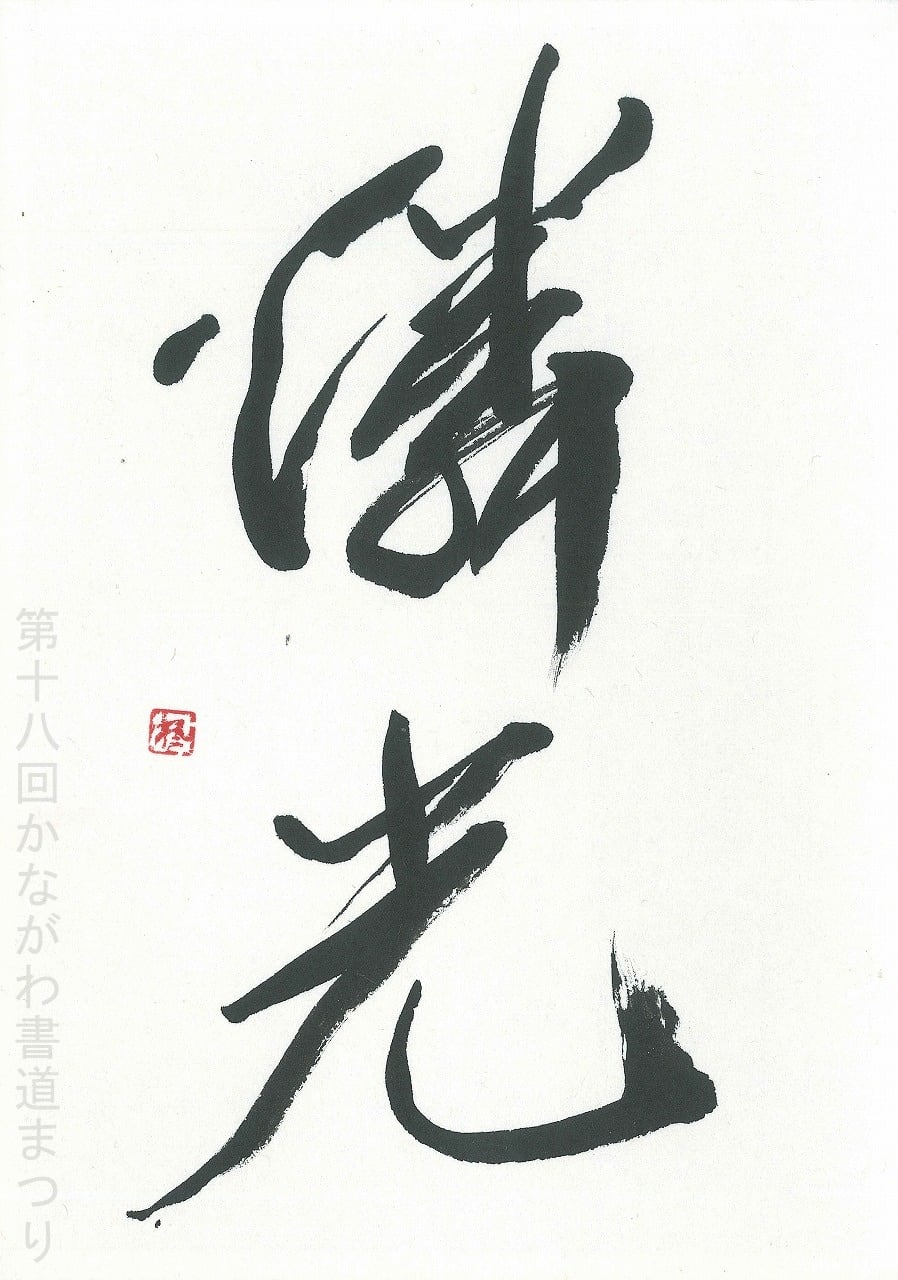 燐光
第十八回かながわ書道まつり